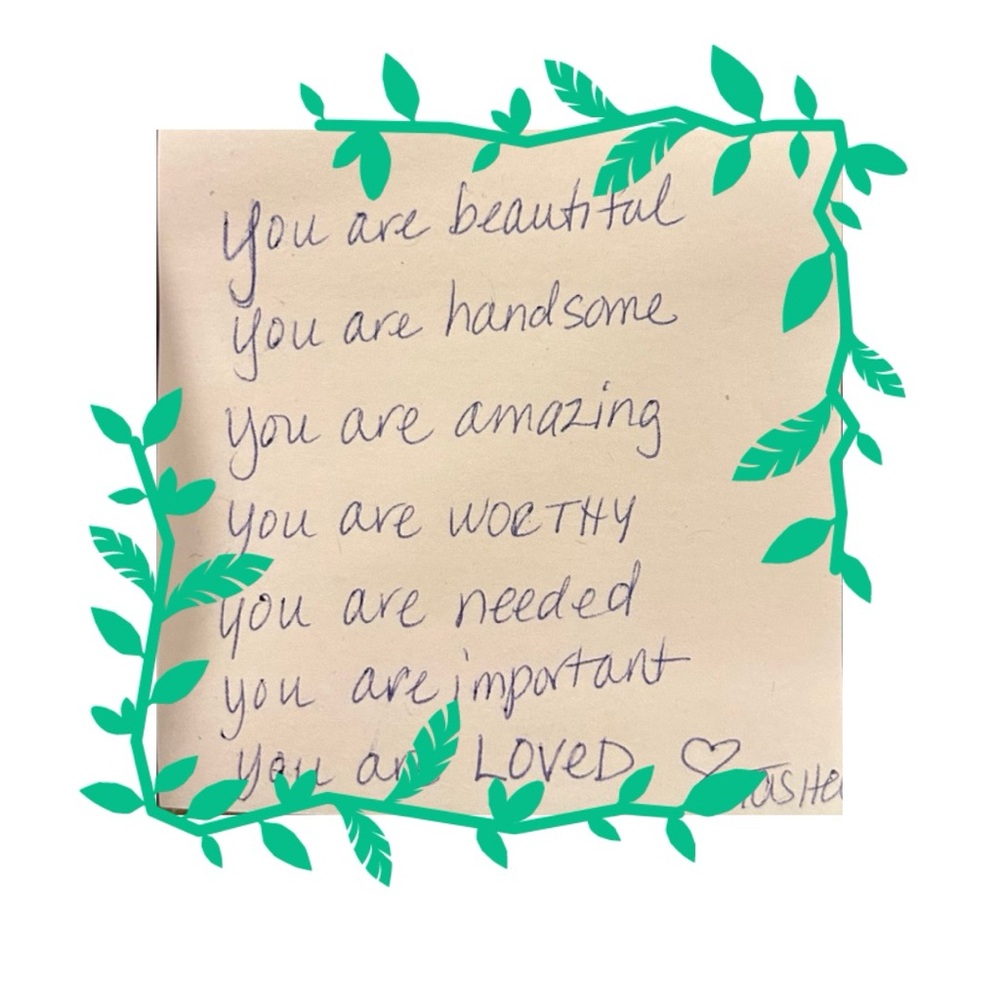 You are beautiful
you are handsome
you are amazing
you are WORTHY
you are needed
you are important
you are LOVED